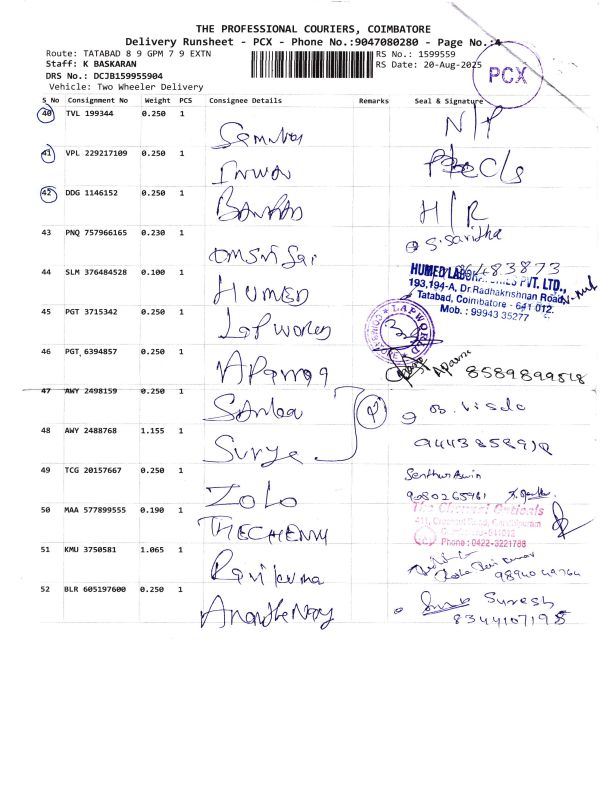 THE PROFESSIONAL COURIERS, COIMBATORE
Delivery Runsheet - PCX - Phone No.:9047080280 - Page No.:4
Route: TATABAD 8 9 GPM 7 9 EXTN RS No.: 1599559
Staff: K BASKARAN RS Date: 20-Aug-2025
DRS No.: DCJB159955904
Vehicle: Two Wheeler Delivery
PCX
S No Consignment No Weight PCS Consignee Details Remarks Seal & Signature
40 TVL 199344 0.250 1 N/P
41 VPL 229217109 0.250 1
42 DDG 1146152 0.250 1 H/R
43 PNQ 757966165 0.230 1 Om Sri Sai S. Saritha
44 SLM 376484528 0.100 1 HUMED
HUMED LABORATORIES PVT. LTD.,
193,194-A, Dr.Radhakrishnan Road,
Tatabad, Coimbatore - 641 012.
Mob. : 99943 35277
45 PGT 3715342 0.250 1 Lap World LAPWORLD
46 PGT 6394857 0.250 1 Aparna Aparna 8589899518
47 AWY 2498159 0.250 1
48 AWY 2488768 1.155 1 Surya
49 TCG 20157667 0.250 1 ZOLO 9080265961
50 MAA 577899555 0.190 1 THECHENNY
The Chennai Opticals
Phone : 0422-3221788
51 KMU 3750581 1.065 1 Ravikuma 9894049764
52 BLR 605197600 0.250 1 Suresh
8344107195